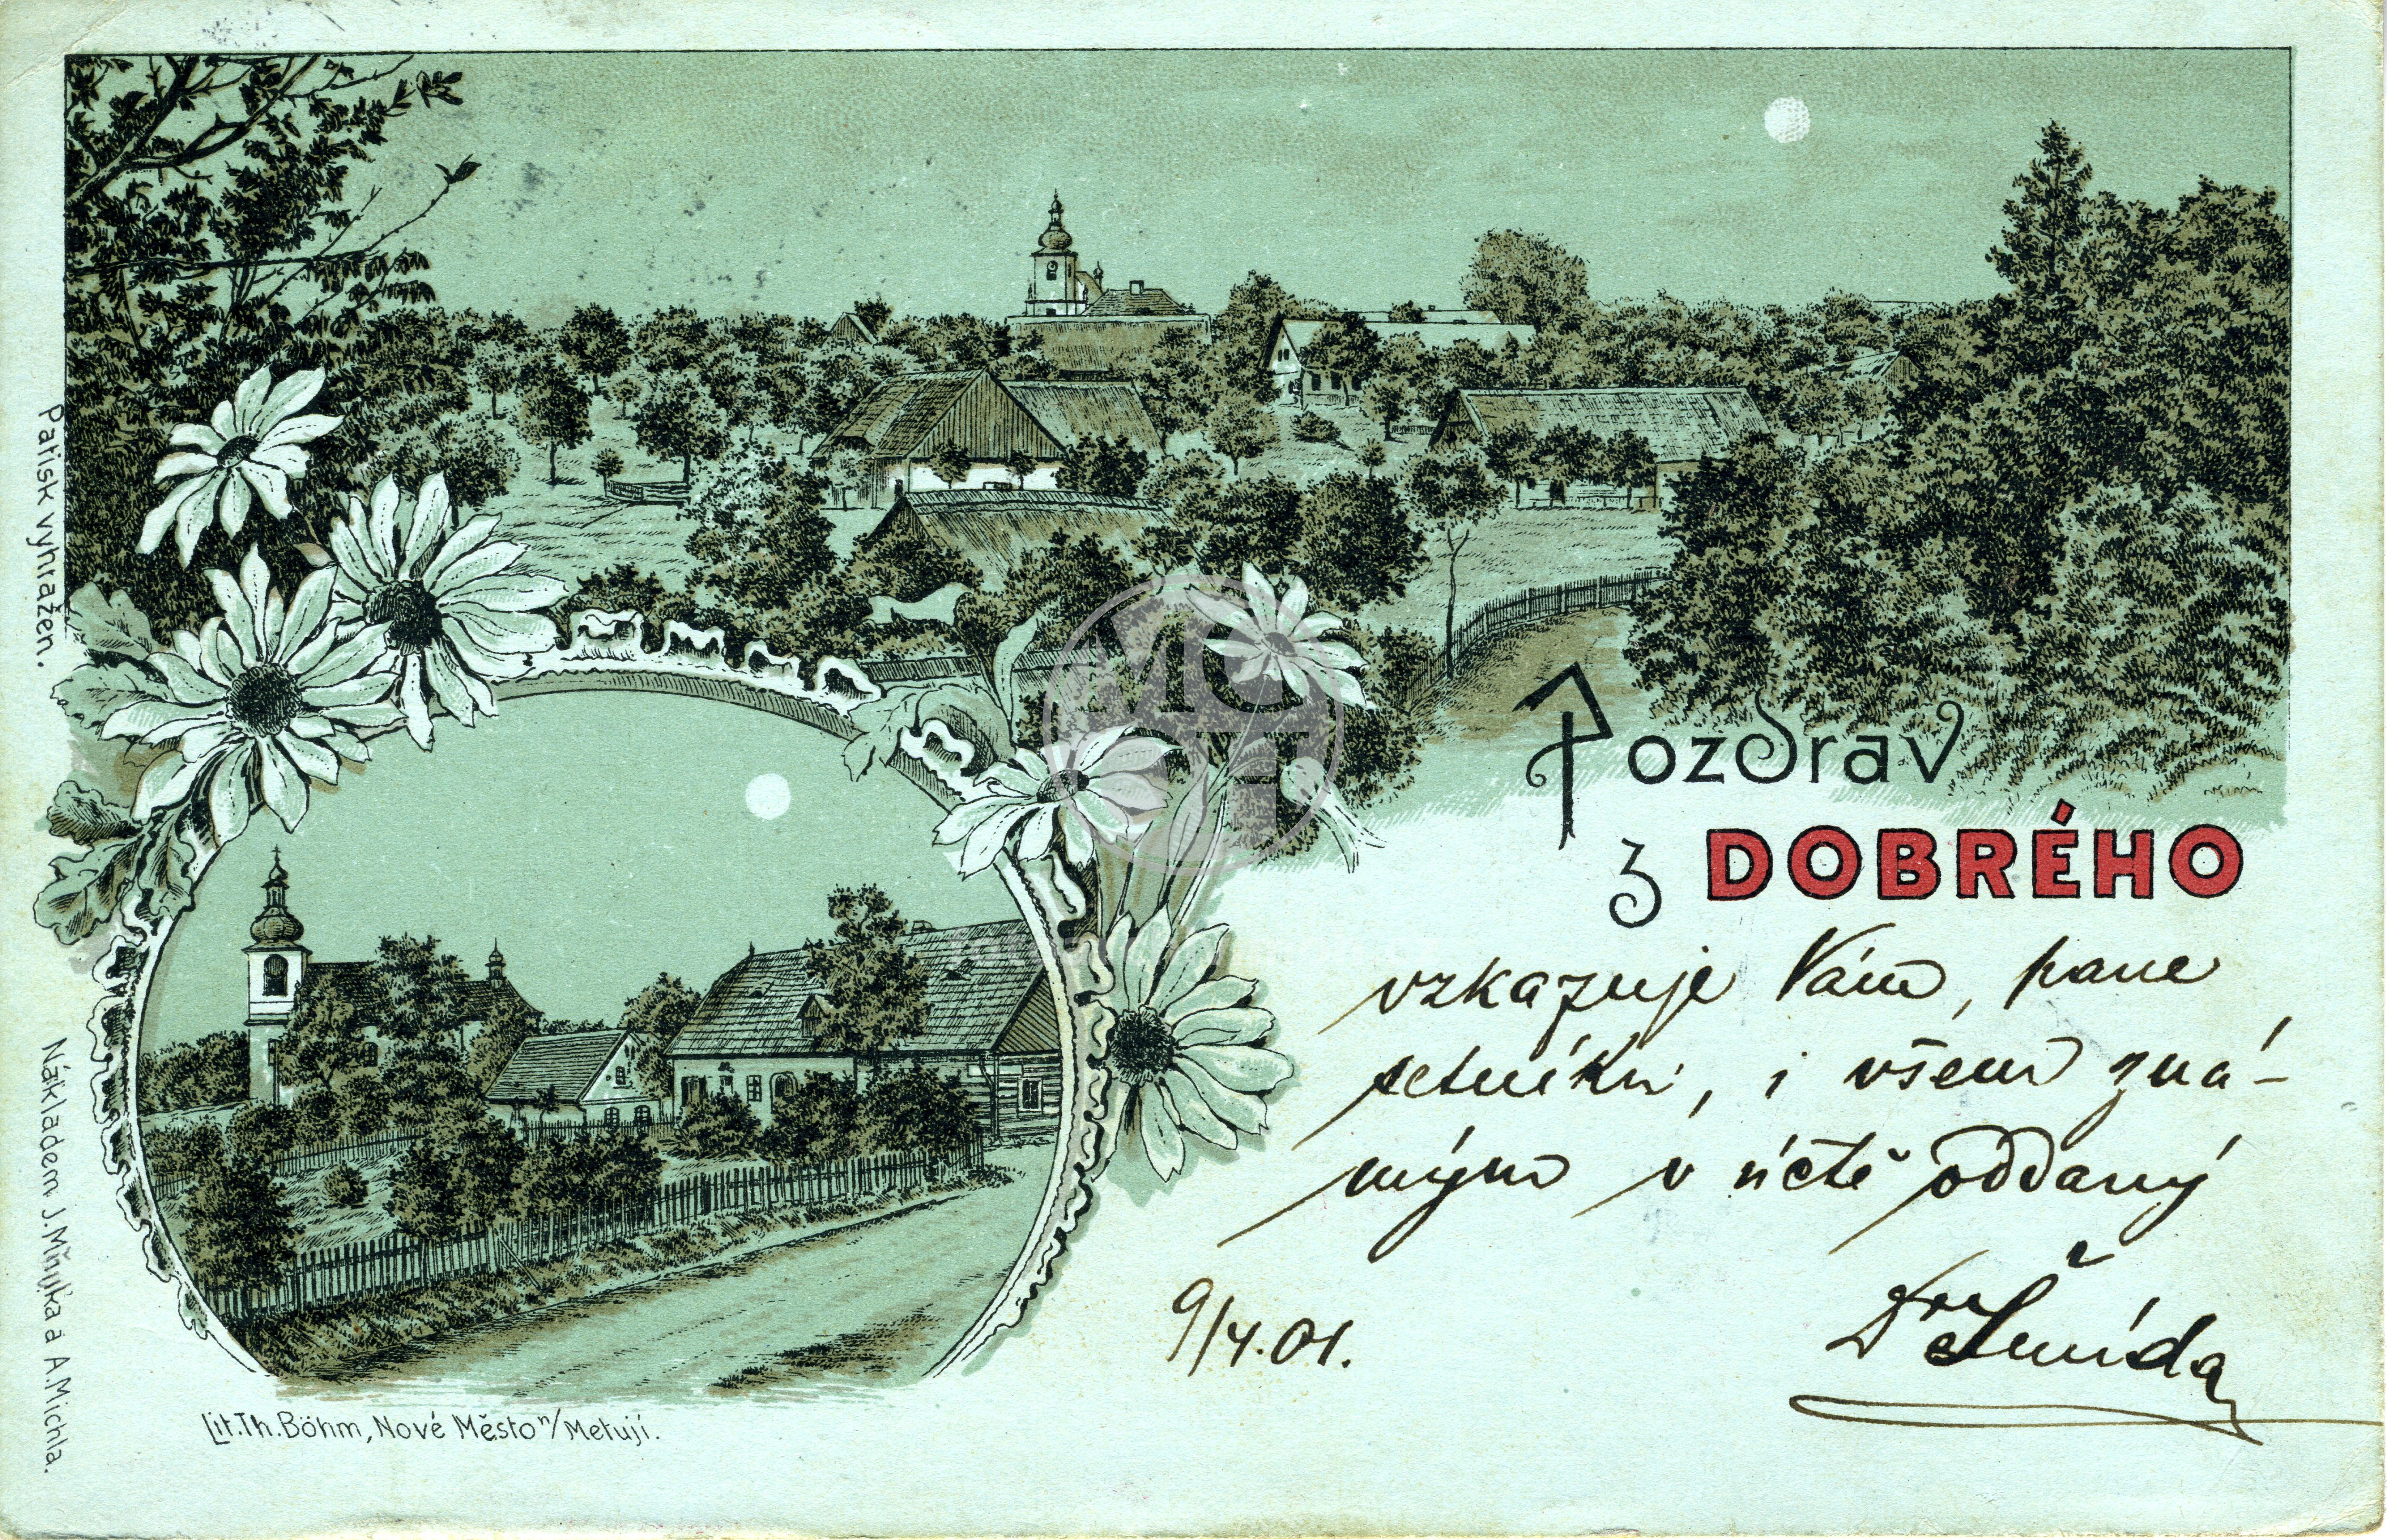 Pozdrav
z DOBRÉHO
vzkazuje Vám, pane
setníku, i všem zná-
mým v úctě oddaný
9/4.01.
Dr Šmída
Pařisk vyhražen.
Nákladem J. Mňuka a A. Michla.
Lit. Th. Böhm, Nové Město n/Metují.
MC